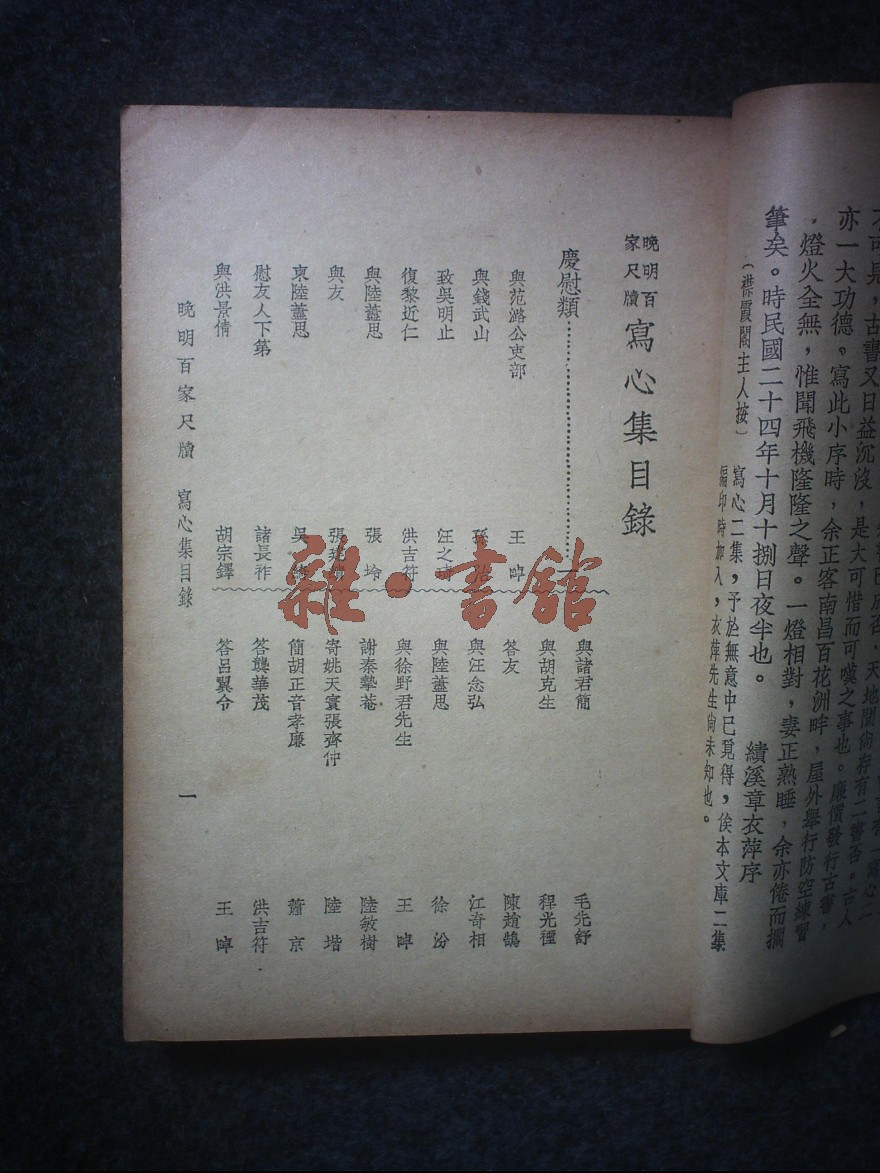 亦一大功德。寫此小序時，余正客南昌百花洲畔，屋外舉行防空練習
，燈火全無，惟聞飛機隆隆之聲。一燈相對，妻正熟睡，余亦倦而擱
筆矣。時民國二十四年十月十捌日夜半也。　績溪章衣萍序
（襟霞閣主人按）　寫心二集，予於無意中已覓得，俟本文庫二集
編印時加入，衣萍先生尚未知也。
晚明百家尺牘　寫心集目錄
慶慰類
與范潞公吏部　王晫
與錢武山　孫
致吳明止　汪之
復黎近仁　洪吉符
與陸藎思　張坽
與友　張
柬陸藎思　吳
慰友人下第　諸長祚
與洪景倩　胡宗鐸
與諸君簡　毛先舒
與胡克生　程光禋
答友　陳趙鵠
與汪念弘　江奇相
與陸藎思　徐汾
與徐野君先生　王晫
謝秦摯菴　陸敏樹
寄姚天寰張齊仲　陸堦
簡胡正音孝廉　蕭京
答龔華茂　洪吉符
答呂翼令　王晫
晚明百家尺牘　寫心集目錄
一
雜·書館